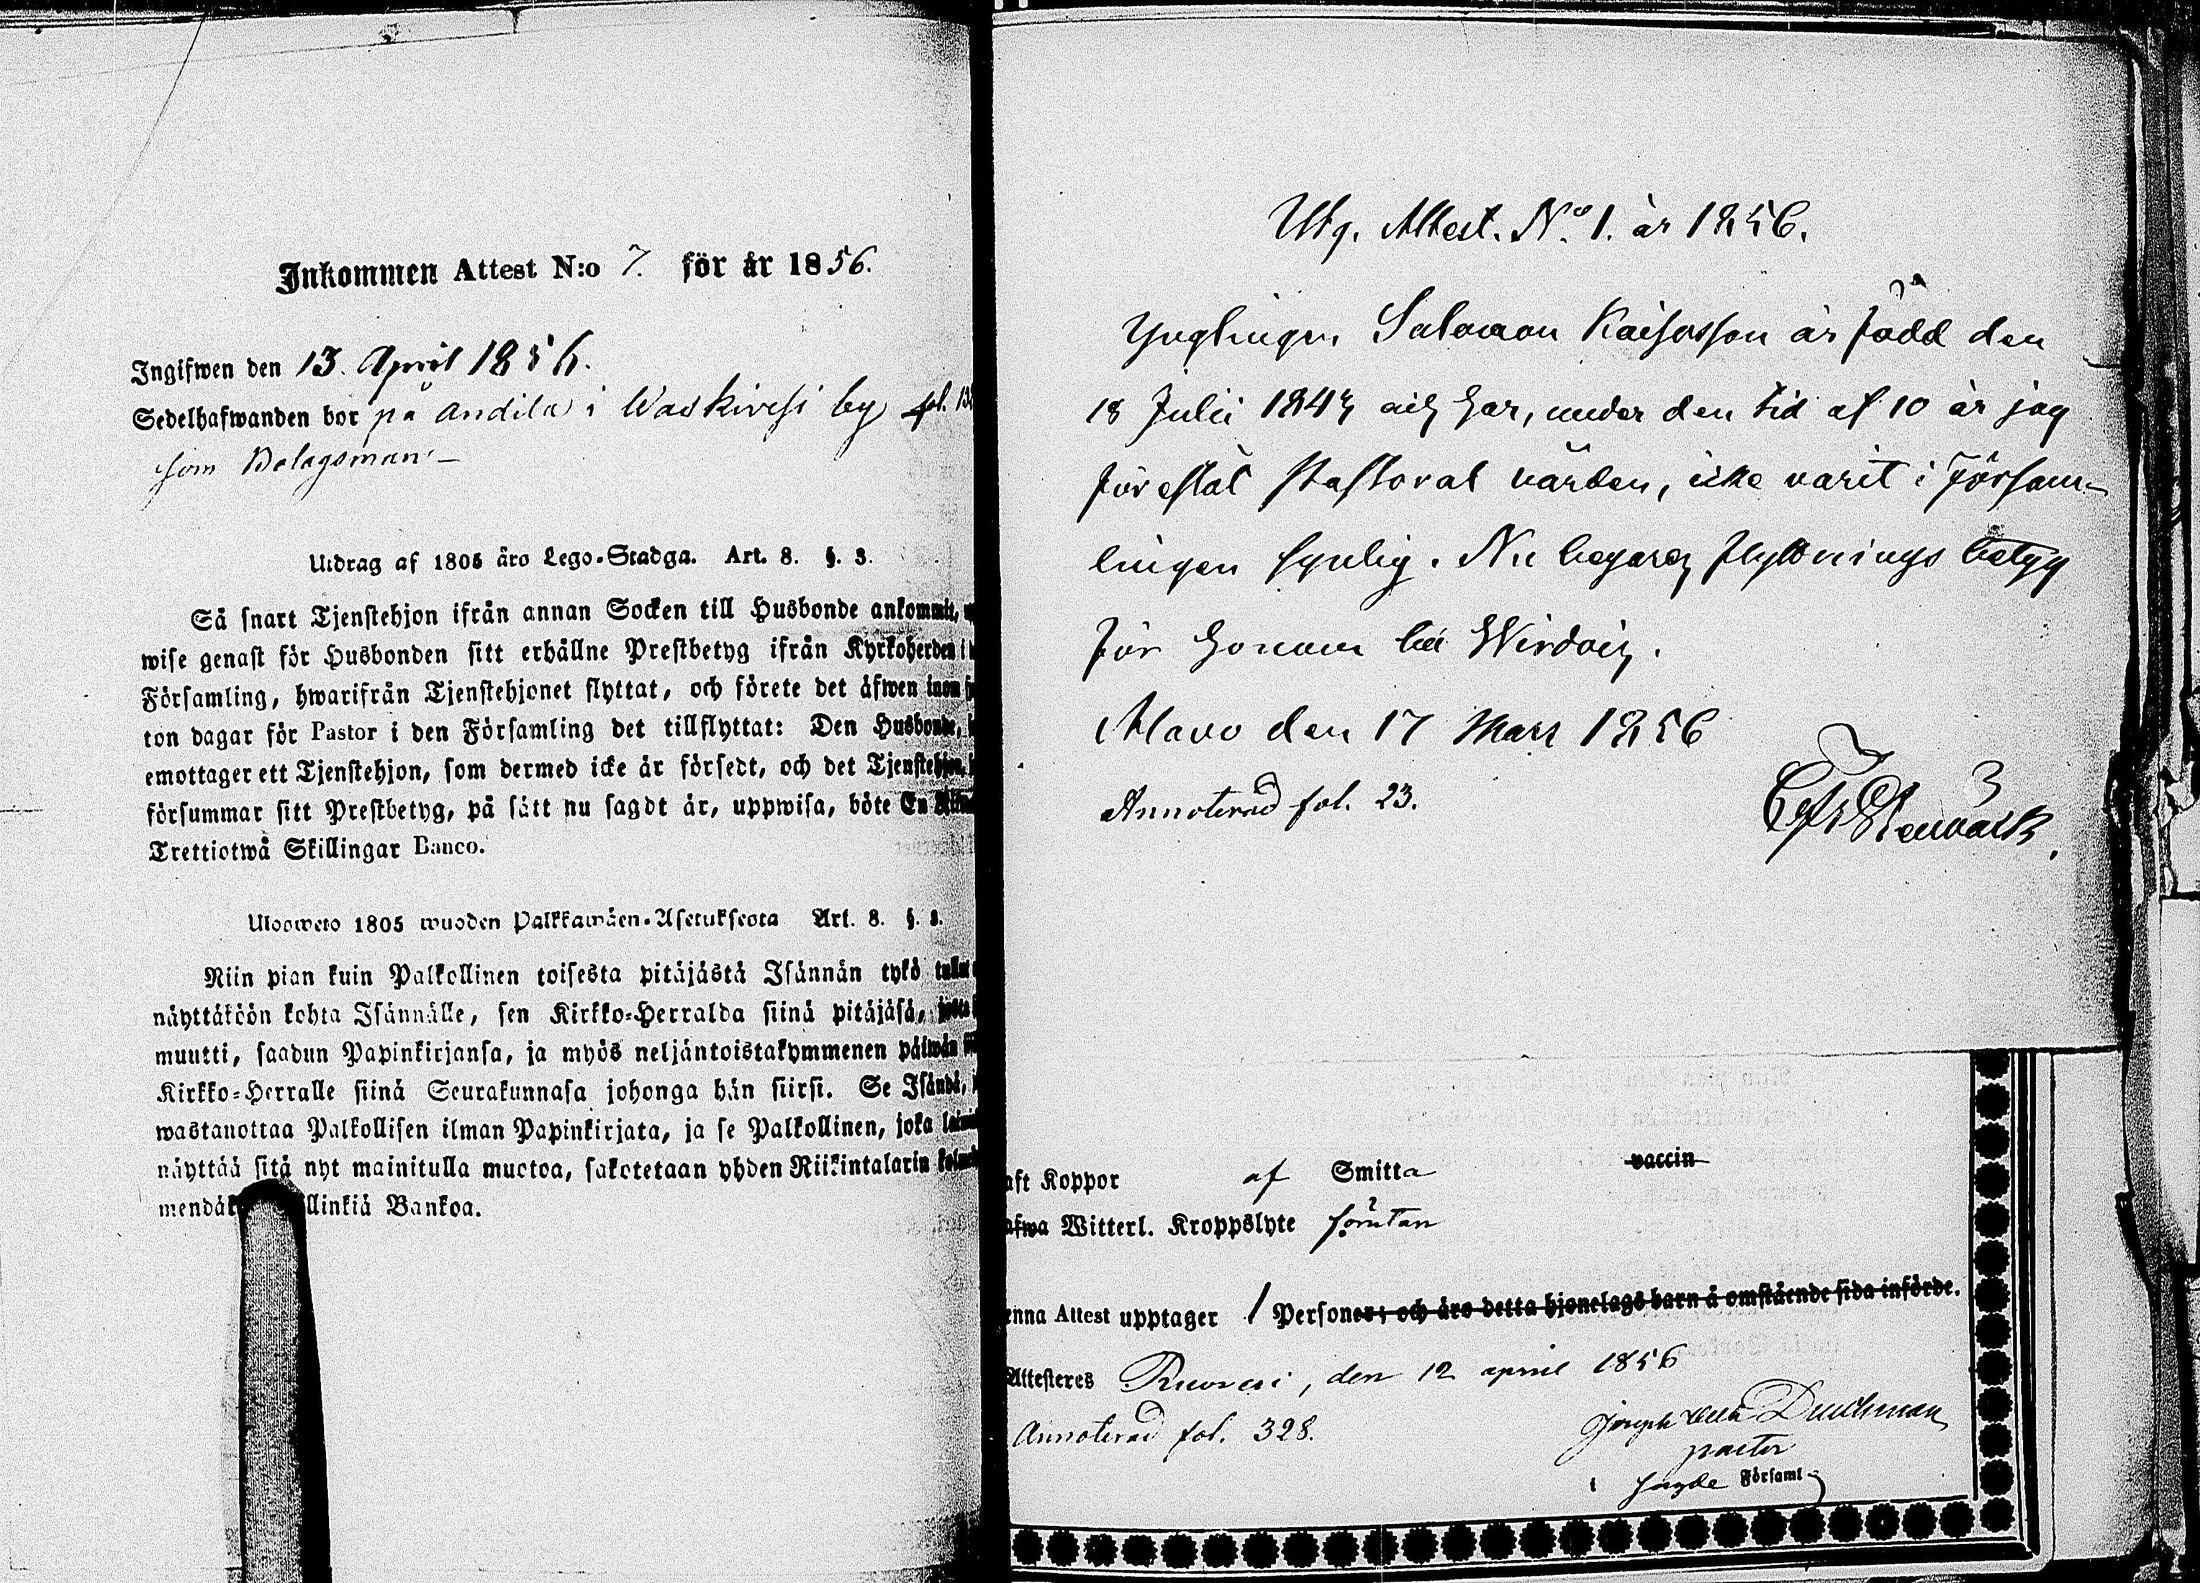 Inkommen Attest N:o 7. för år 1856.
Ingifwen den 13. April 1856.
Sedelhafwanden bor på Andila i Waskivesi by fol. 13
som Bolagsman
Utdrag af 1805 åro Lego-Stadga. Art. 8. §. 3.
Så snart Tjenstehjon ifrån annan Socken till Husbonde ankommit,
wise genast för Husbonden sitt erhållne Prestbetyg ifrån Kyrkoherden i
Församling, hwarifrån Tjenstehjonet flyttat, och förete det äfwen inom
ton dagar för Pastor i den Församling det tillflyttat: Den Husbonde,
emottager ett Tjenstehjon, som dermed icke är försedt, och det Tjenstehjon,
försummar sitt Prestbetyg, på sätt nu sagdt är, uppwisa, böte En
Trettiotwå Skillingar Banco.
Ulosweto 1805 wuoden Palkkawäen-Asetuksesta Art. 8. §. 3.
Niin pian kuin Palkollinen toisesta pitäjästä Isännän tykö tullut
näyttäköön kohta Isännälle, sen Kirkko-Herralda siinä pitäjäsä, josta
muutti, saadun Papinkirjansa, ja myös neljäntoistakymmenen päiwän
Kirkko-Herralle siinä Seurakunnasa johonga hän siirsi. Se Isändä,
wastanottaa Palkollisen ilman Papinkirjata, ja se Palkollinen, joka
näyttää sitä nyt mainitulla muotoa, sakotetaan yhden Riikintalarin
mendä llinkiä Bankoa.
Utg. Attest. No. 1. år 1856.
Ynglingen Salomon Kaisasson är född den
18 Julii 1843 och har, under den tid af 10 år jag
förestått Pastoral vården, icke varit i Försam-
lingen synlig. Nu begäres flyttnings betyg
för honom till Wirdois.
Alavo den 17 Mars 1856
Annoterad fol. 23.
aft Koppor af Smitta vaccin
afwa Witterl. Kroppslyte förutan
enna Attest upptager 1 Personer; och äro detta hjonelags barn å omstående sida införde.
Attesteres Ruovesi, den 12 april 1856
Annoterad fol. 328.
Joseph Wilh Duchman
pastor
i sagde Församl